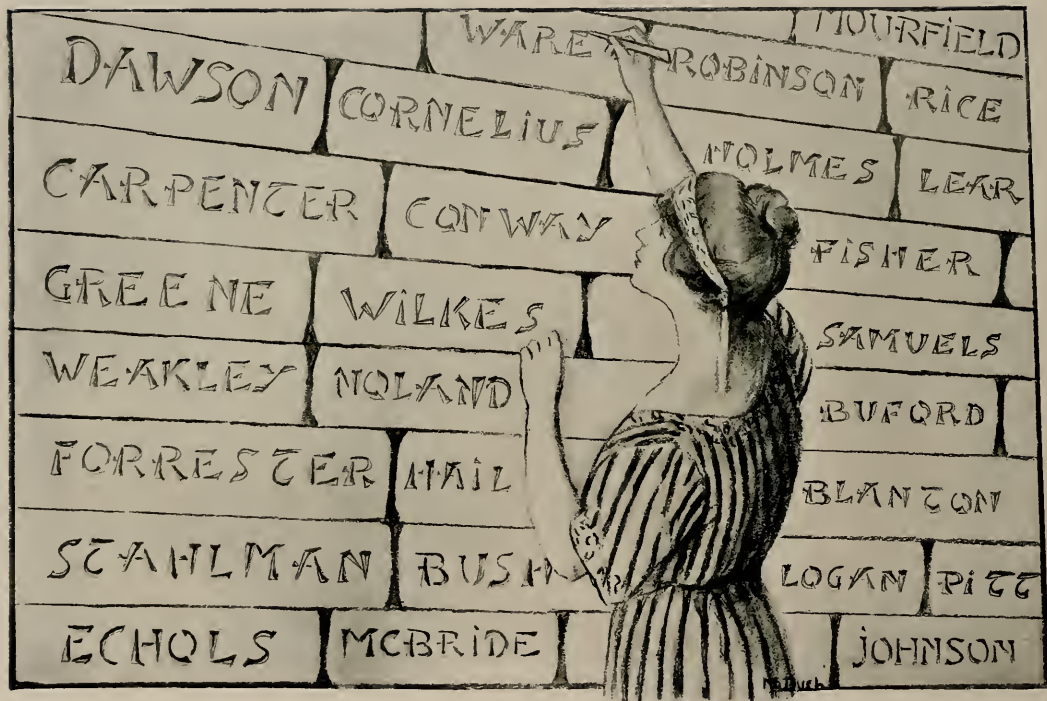 WARE MOURFIELD
DAWSON CORNELIUS ROBINSON RICE
CARPENTER CONWAY HOLMES LEAR
GREENE WILKES FISHER
WEAKLEY NOLAND SAMUELS
BUFORD
FORRESTER HAIL BLANTON
STAHLMAN BUSH LOGAN PITT
ECHOLS MCBRIDE JOHNSON